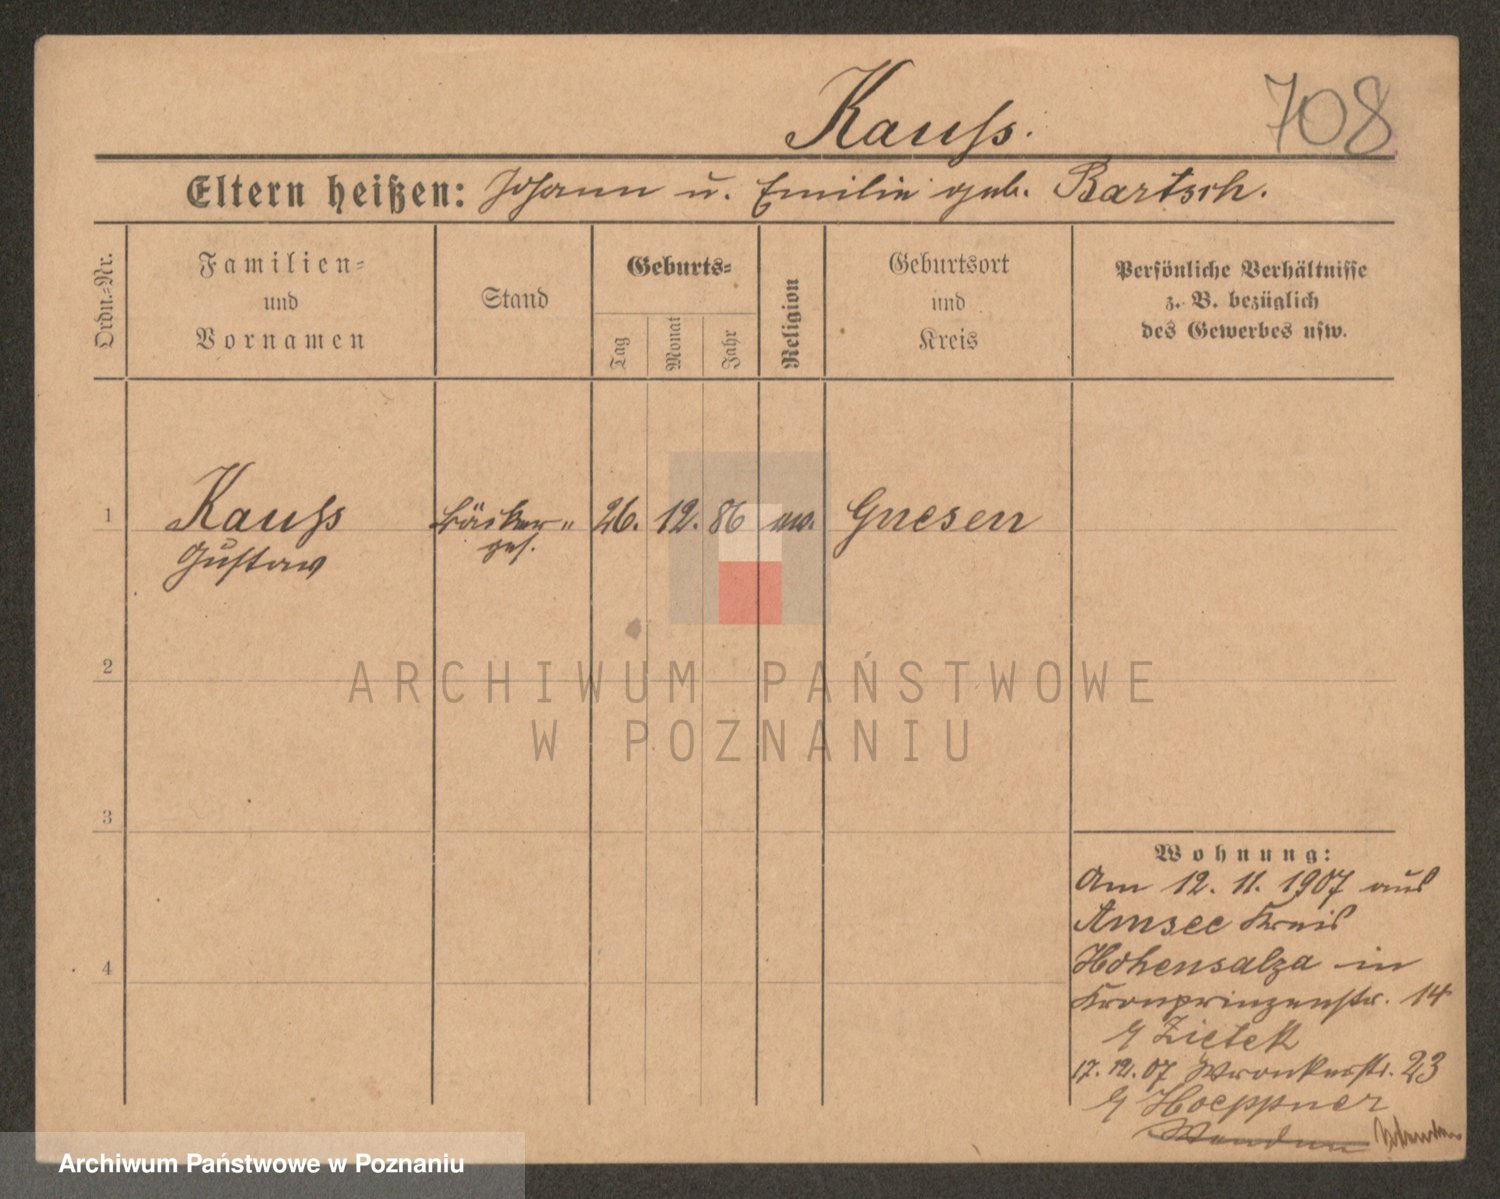 Kauss.
708
Eltern heißen: Johann u. Emilie geb. Bartsch.
Ordn.-Nr.
Familien-
und
Vornamen
Stand
Geburts-
Tag
Monat
Jahr
Religion
Geburtsort
und
Kreis
Persönliche Verhältnisse
z. B. bezüglich
des Gewerbes usw.
1
Kauss
Gustav
Bäcker-
ges.
26.
12.
86
ev.
Gnesen
2
3
4
Wohnung:
Am 12. 11. 1907 aus
Amsee Kreis
Hohensalza in
Kronprinzenstr. 14
Zietek
17. 12. 07 Wronkerstr. 23
Hoeppner
ARCHIWUM PAŃSTWOWE
W POZNANIU
Archiwum Państwowe w Poznaniu